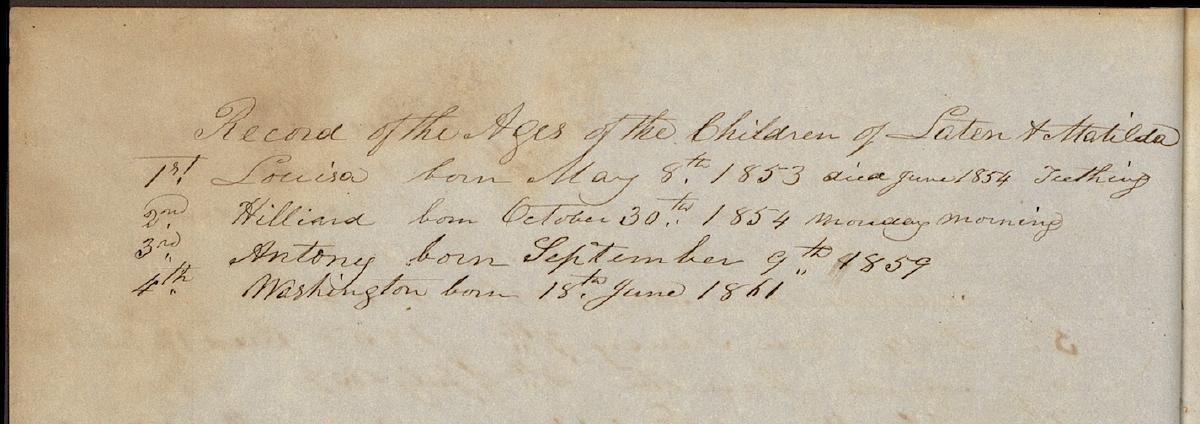 Record of the Ages of the Children of Laten & Matilda
1st. Louisa born May 8th. 1853 died June 1854 Teething
2nd. Hilliard born October 30th. 1854 monday morning
3rd. Antony born September 9th. 1859
4th. Washington born 18th. June 1861